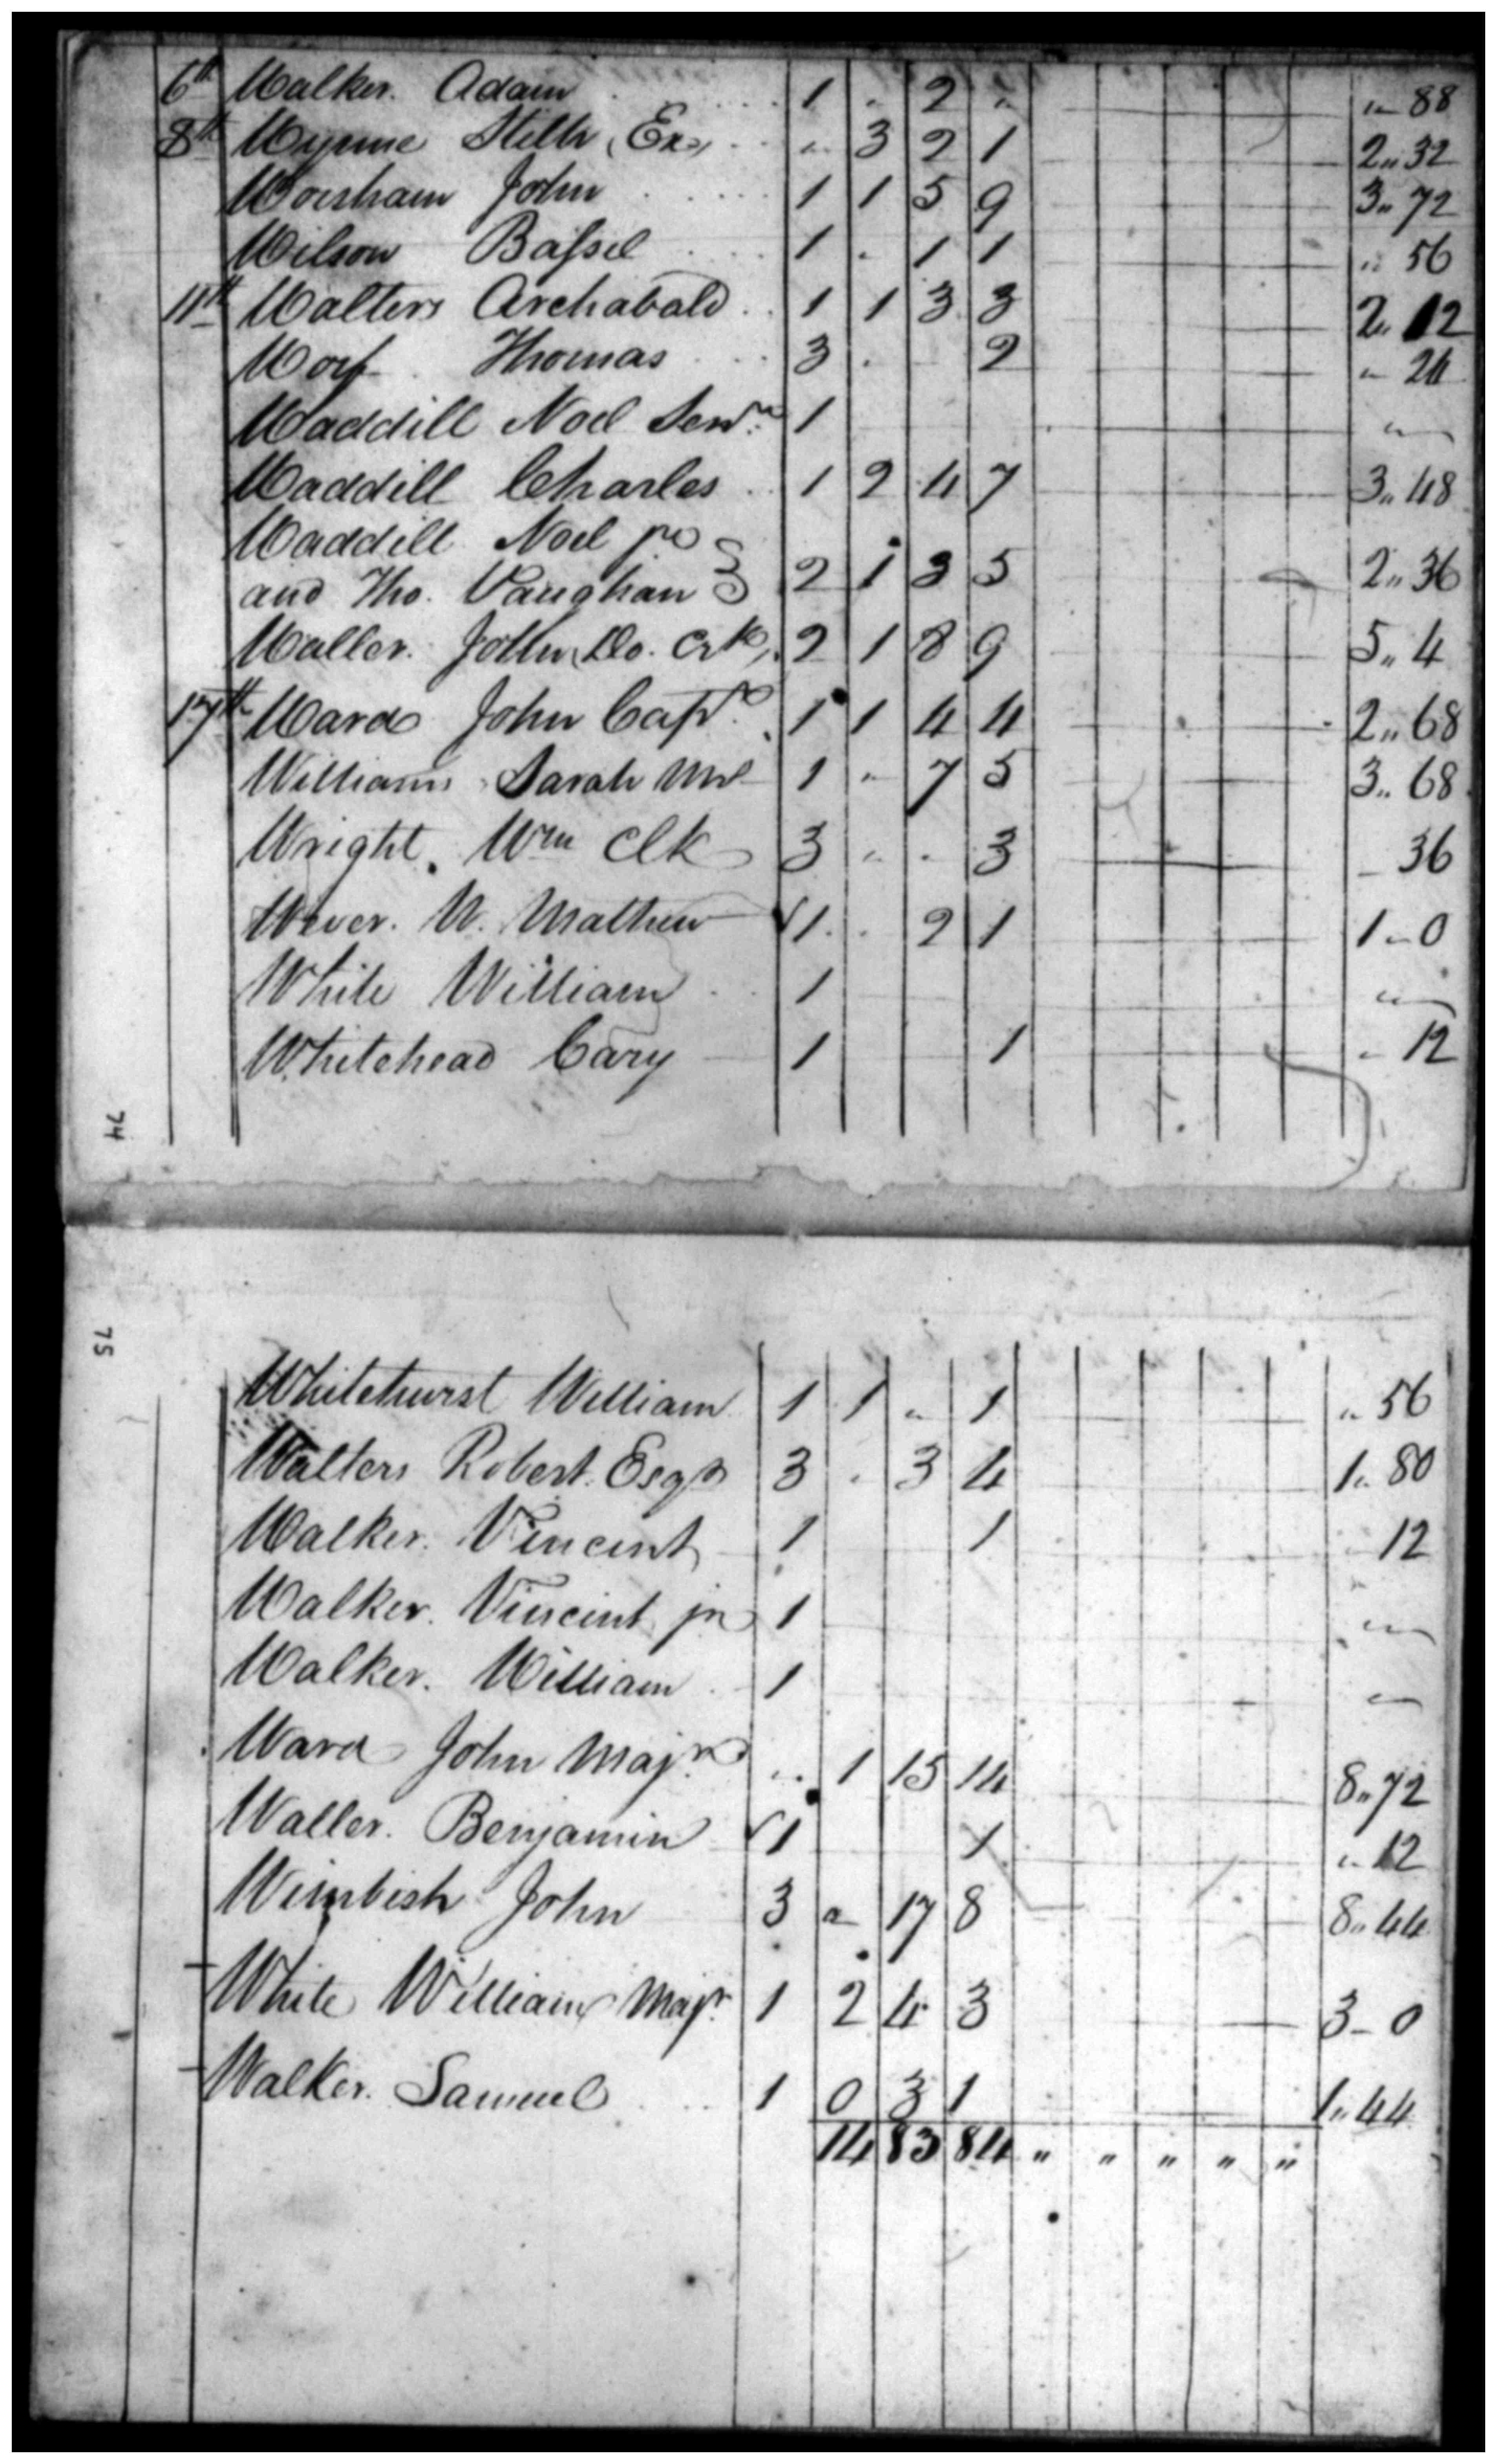 6th Walker. Adam 1 " 2 " " 88
8th Wynne Stith (Ex) " 3 2 1 2" 32
Worsham John 1 1 5 9 3" 72
Wilson Bassel 1 . 1 1 " 56
11th Walters Archabald 1 1 3 3 2" 12
Thomas 3 . 2 " 24
Waddill Noel Senr. 1 "
Waddill Charles 1 2 4 7 3" 48
Waddill Noel jr
and Tho. Vaughan 2 1 3 5 2" 36
Waller. John, Do. Crk, 2 1 8 9 5" 4
17th Ward John Capt. 1 1 4 4 2" 68
Williams Sarah 1 " 7 5 3" 68
Wright. Wm Clk 3 " " 3 - 36
Wever. W. Mathew √1 . 2 1 1 " 0
White William 1 "
Whitehead Cary 1 1 " 12
74
75
Whitehurst William 1 1 " 1 " 56
Walters Robert. Esqr 3 . 3 4 1" 80
Walker. Vincent 1 1 12
Walker. Vincent jr 1 "
Walker. William 1 "
Ward John Majr. " 1 15 14 8" 72
Waller. Benjamin √1 1 " 12
Wimbish John 3 " 17 8 8" 44
White William Majr. 1 2 4 3 3 - 0
Walker. Samuel 1 0 3 1 1" 44
14 83 84 " " " " "